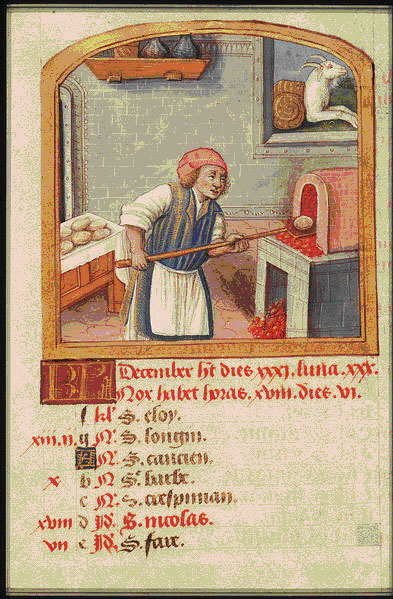 KL December ht dies xxxi. luna. xxx.
Nox habet horas. xviii. dies. vi.
f kl S. eloy.
xiii. n. g N. S. longin.
A N. S. cancien.
x b N S. barbe.
c N. S. crespinian.
xviii d Id. S. nicolas.
vii e Id. S. fare.